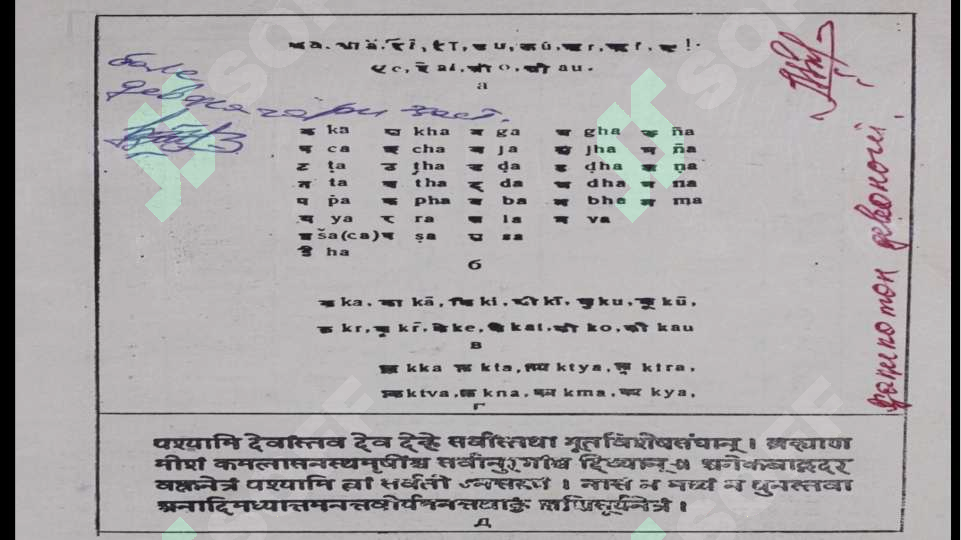 अ a. आ ā. इ i, ई ī, उ u, ऊ ū, ऋ r, ॠ r̄.
ए e, ऐ ai, ओ o, औ au.
а
क ka घ kha ग ga घ gha ङ ña
च ca छ cha ज ja झ jha ञ ña
ट ṭa ठ ṭha ड ḍa ढ ḍha ण ṇa
त ta थ tha द da ध dha न na
प pa फ pha ब ba भ bha म ma
य ya र ra ल la व va
श ša(ca) ष ṣa स sa
ह ha
б
क ka, का kā, कि ki, की kī, कु ku, कू kū,
कृ kr, कॄ kr̄, के ke, कै kai, को ko, कौ kau
в
क्क kka क्त kta, क्त्य ktya, क्त्र ktra,
क्त्व ktva, क्न kna, क्म kma, क्य kya,
г
पश्यामि देवांस्तव देव देहे सर्वांस्तथा भूतविशेषसंघान् । ब्रह्माण
मीशं कमलासनस्थमृषींश्च सर्वानुरगांश्च दिव्यान् ॥ अनेकबाहूदर
वक्त्रनेत्रं पश्यामि त्वां सर्वतो ऽनन्तरूपं । नान्तं न मध्यं न पुनस्तवा
अनादिमध्यान्तमनन्तवीर्यमनन्तबाहुं शशिसूर्यनेत्रं ।
д